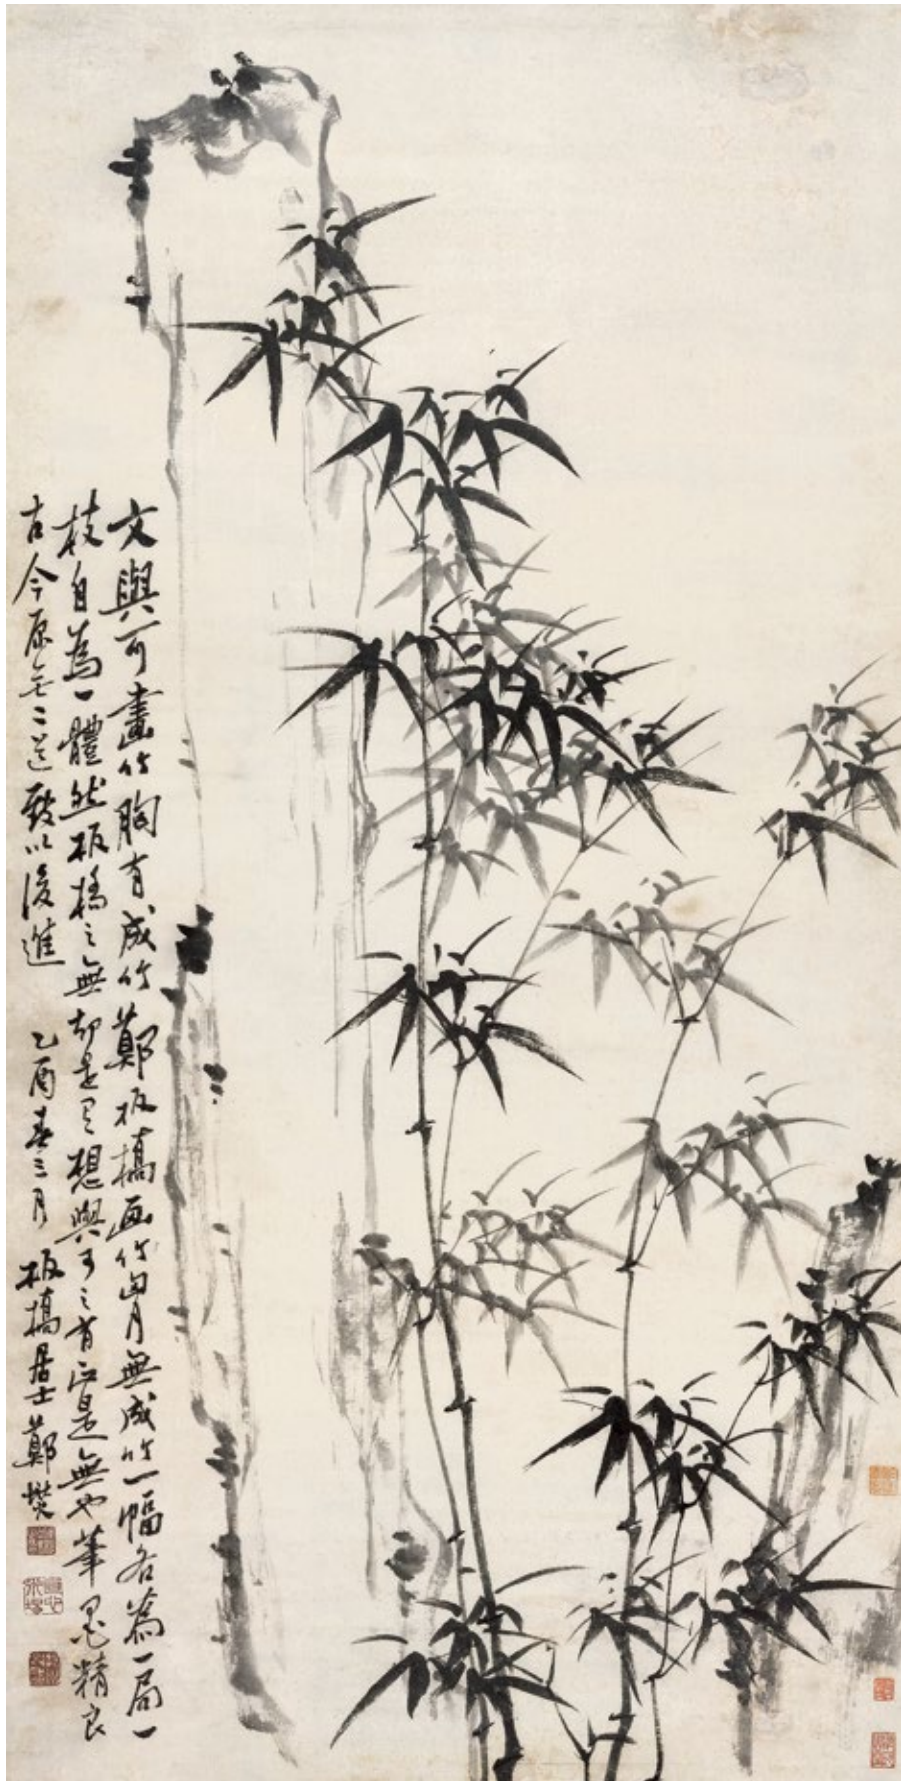 文與可畫竹胸有成竹鄭板橋画竹胸無成竹一幅各為一局一
枝自為一體然板橋之無却是有想與可之有正是無也筆墨精良
古今原無二道敢以後進
乙酉春三月
板橋居士鄭燮